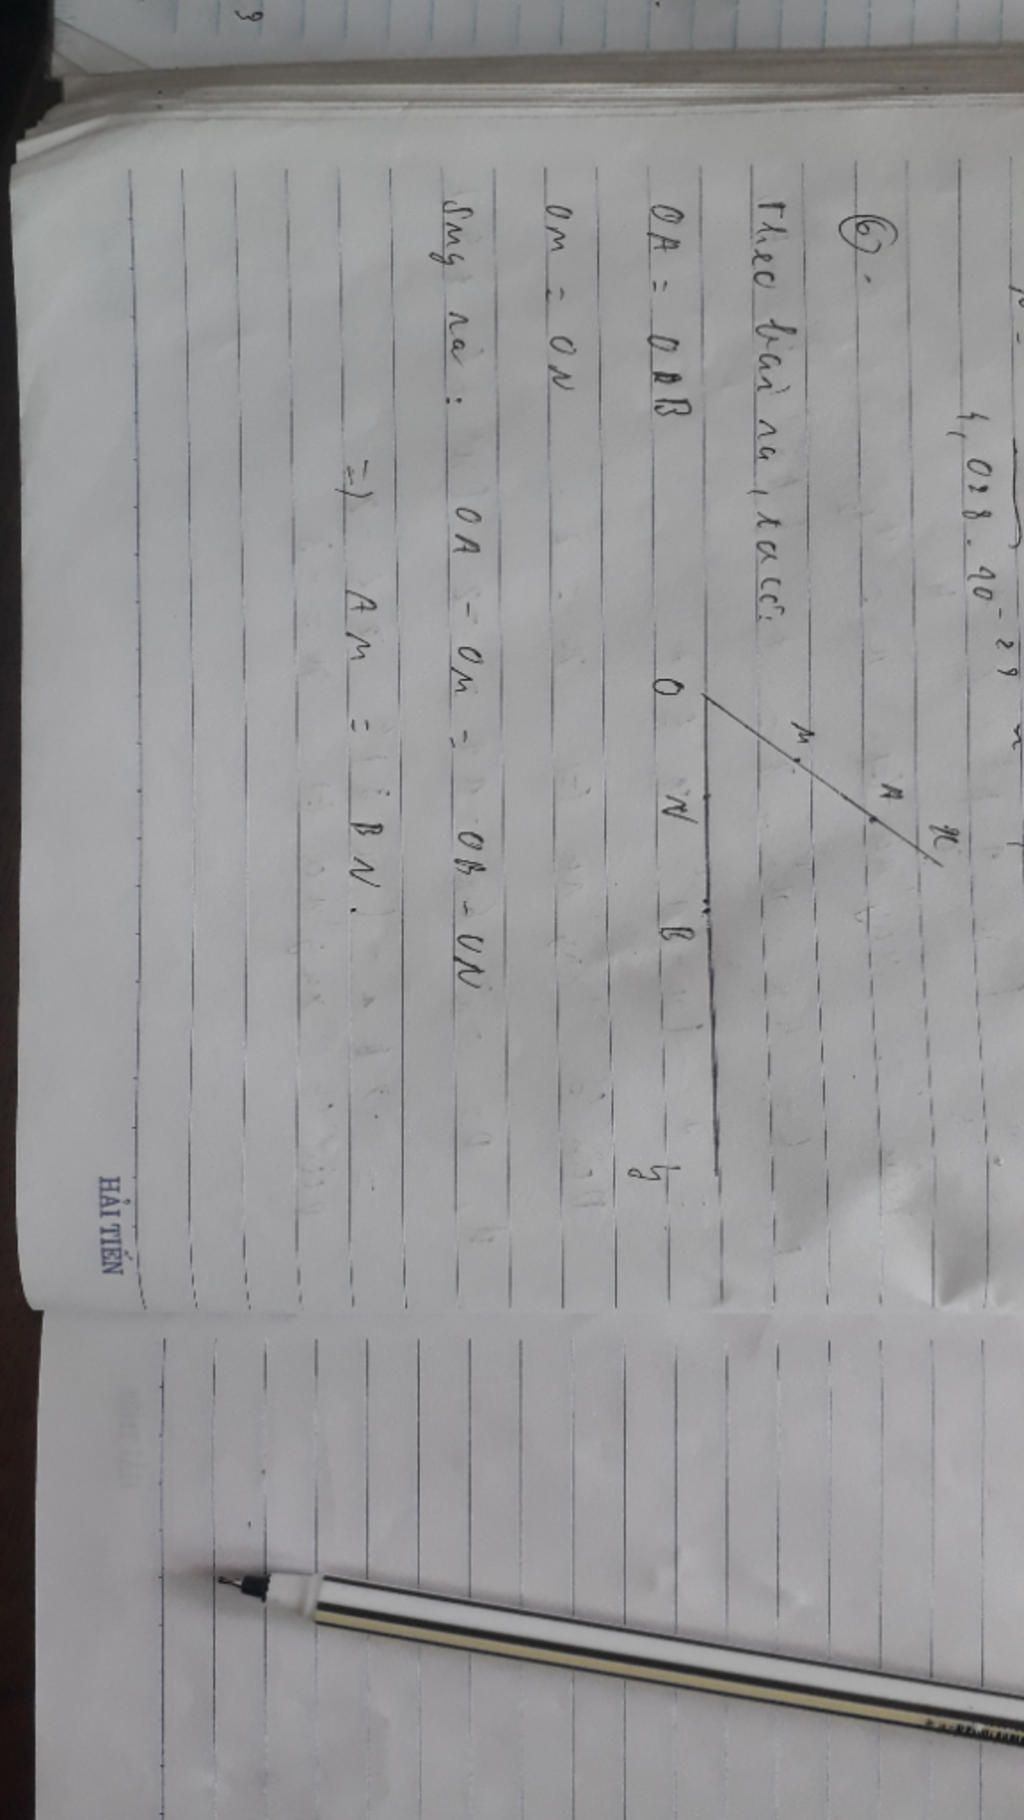 4,028.10^-29
6.
Theo bài ra, ta có:
x
A
M
OA = OB
O N B
y
OM = ON
Suy ra: OA - OM = OB - ON
=> AM = BN.
HẢI TIẾN